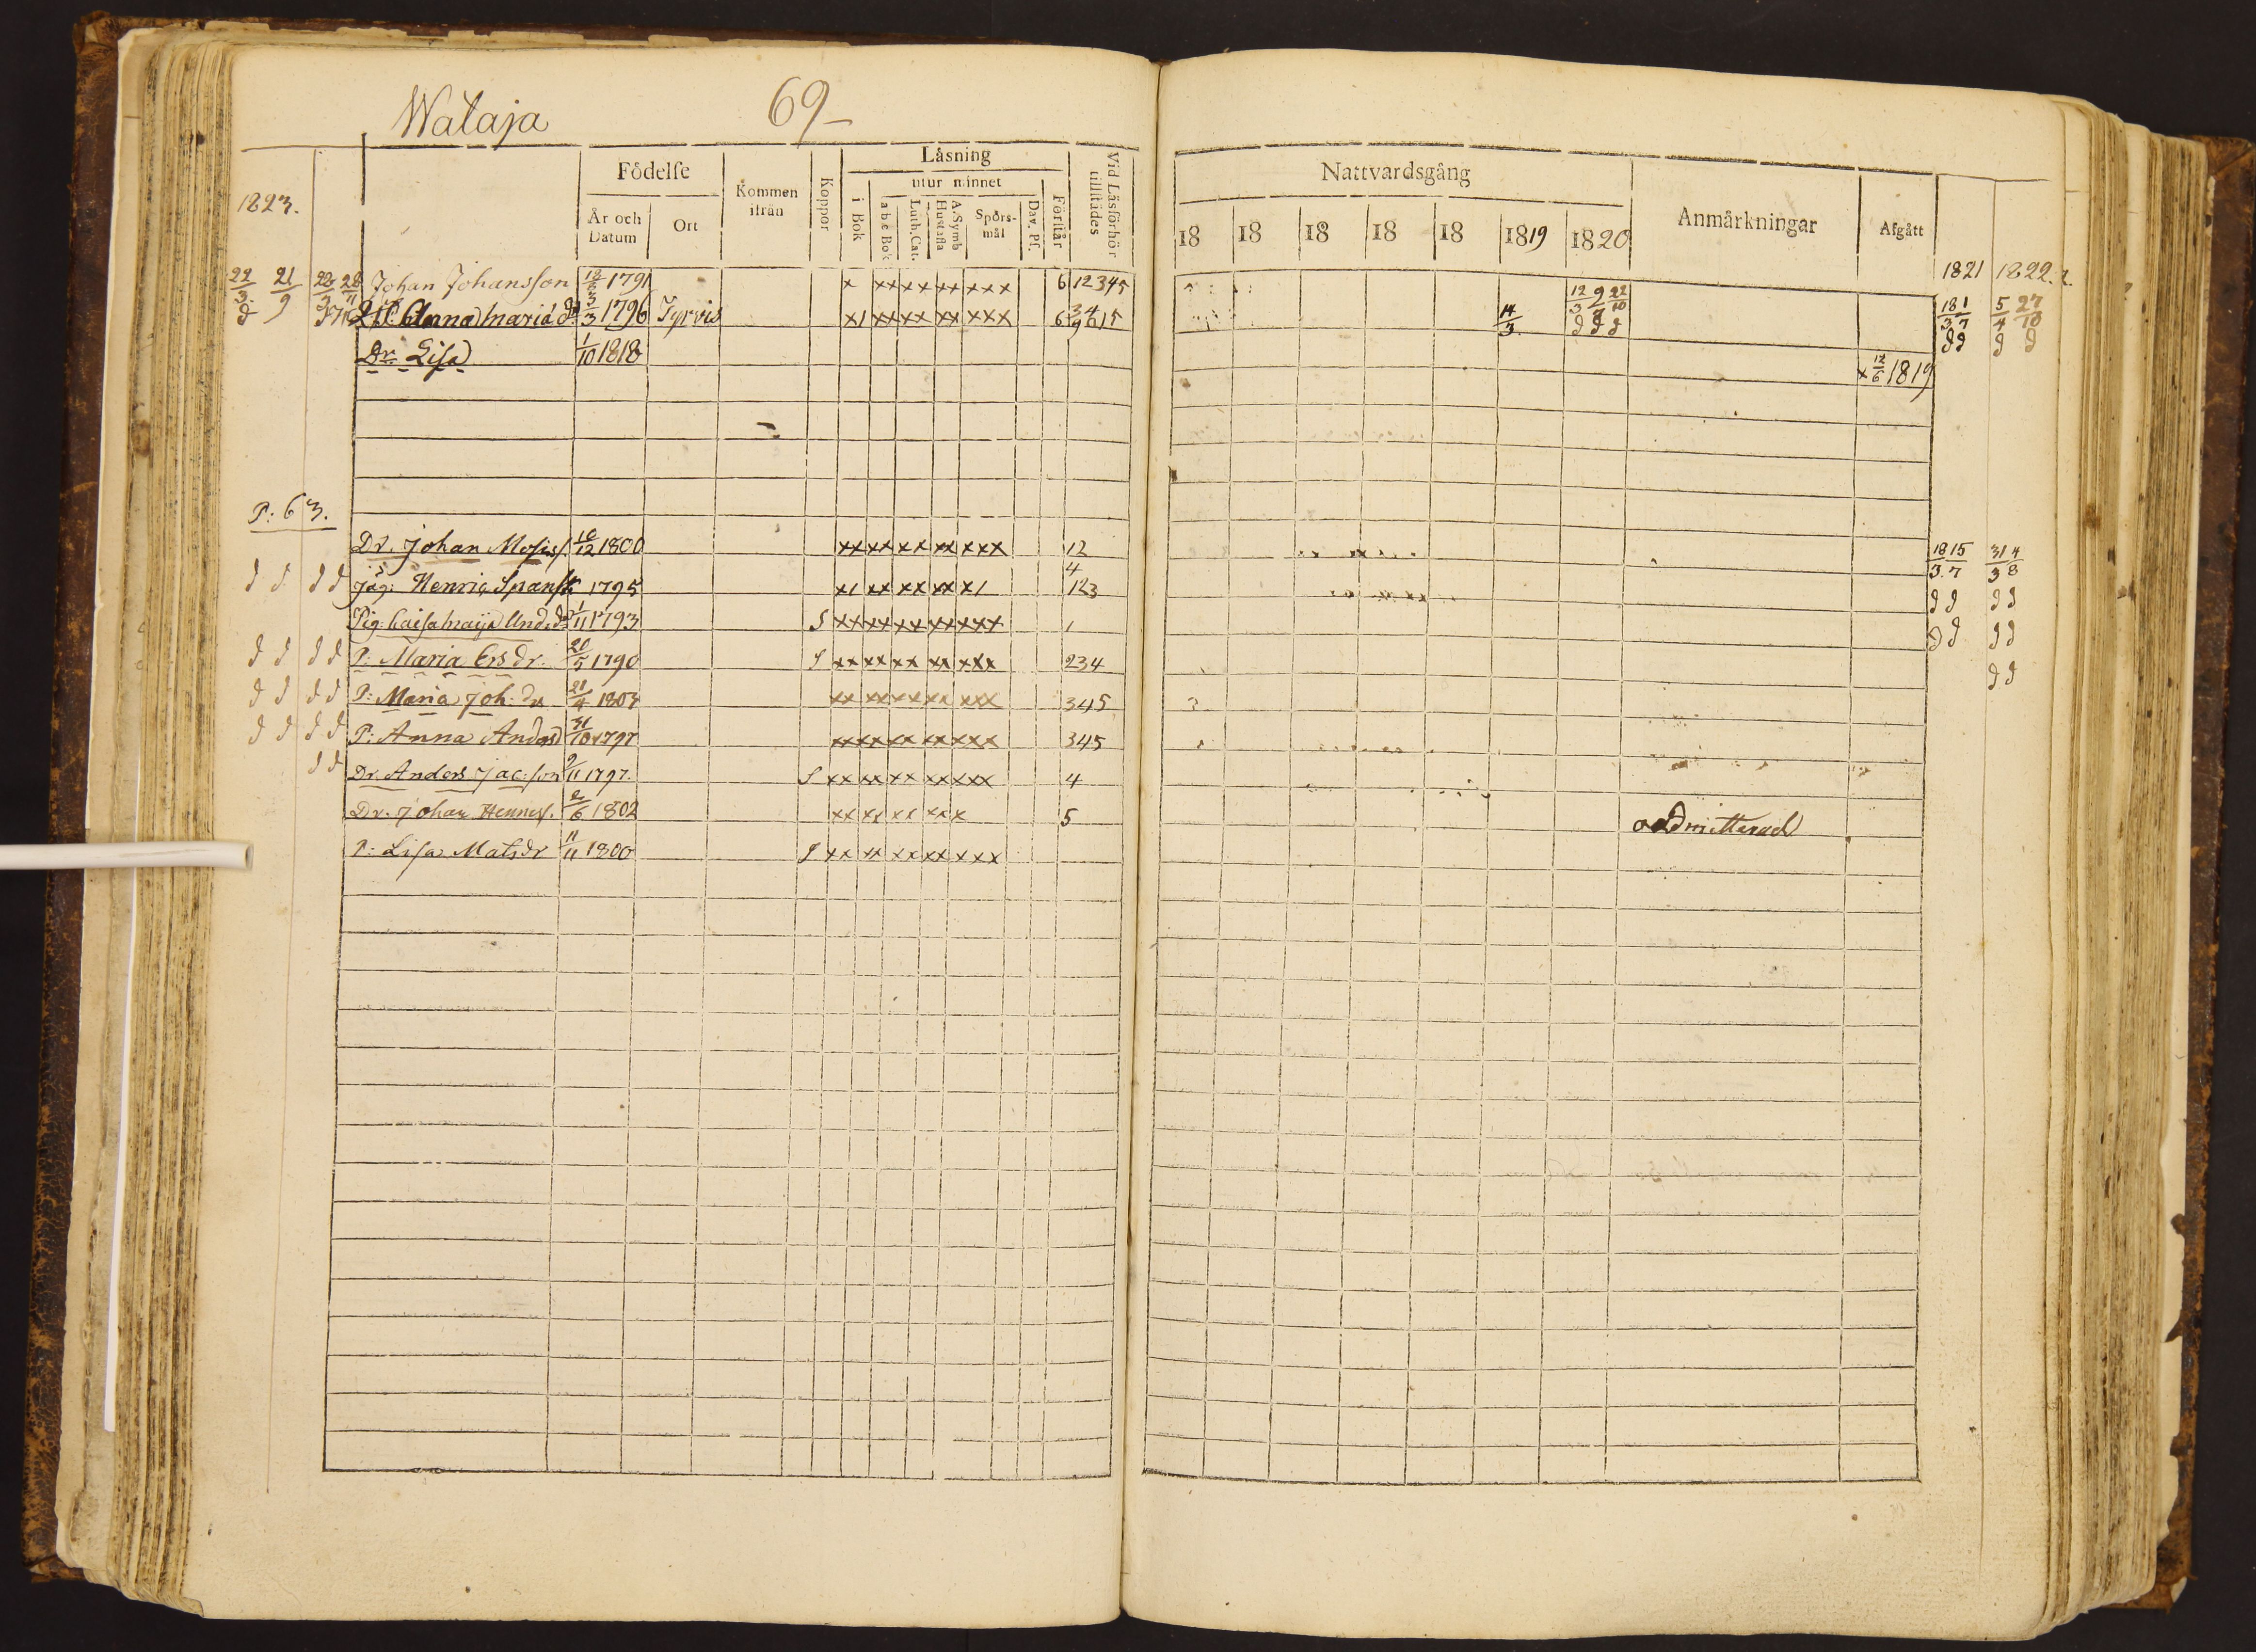 Wataja 69
Födelse
Kommen ifrån
Koppor
Läsning
utur minnet
Vid Läsförhör tillstädes
År och Datum
Ort
i Bok
a b c Bok
Luth. Cat.
A. Symb Hustafla
Spörsmål
Dav. Ps.
Förstår
1823.
22/3 21/9 Johan Johansson 18/3 1791 x xx xx xx xxx 6 12345
Anna Maria 3/3 1796 Tyrvis x1 xx xx xx xxx 6
Dr. Lisa 1/10 1818
P: 63.
Dr. Johan Mosiss. 16/12 1800 xx xx xx xx xxx 12
4
d d d d Jäg: Henric Spansk 1795 x1 xx xx xx x1 123
Pig: Caisa Maija And.dr 1/11 1793 S xx xx xx xx xxx 1
d d d d P: Maria Ersdr. 20/5 1790 S xx xx xx xx xxx 234
d d d d P: Maria Joh: dr 21/4 1803 xx xx xx xx xxx 345
d d d d P: Anna Andsd 31/10 1797 xx xx xx xx xxx 345
d d Dr. Anders Jac:son 9/11 1797. S xx xx xx xx xxx 4
Dr. Johan Henness. 2/6 1802 xx xx xx xx x 5
P: Lisa Matsdr 11/11 1800 S xx xx xx xx xxx
Nattvardsgång
Anmärkningar
Afgått
18 18 18 18 18 1819 1820
1821 1822.
12/3 9/7 22/10
14/3 d d d
18/3 1/7 5/4 27/10
d d d d
x 12/6 1819
18/3 15/7 31/3 4/8
d d d d
d d d d
d d
oadmitterad